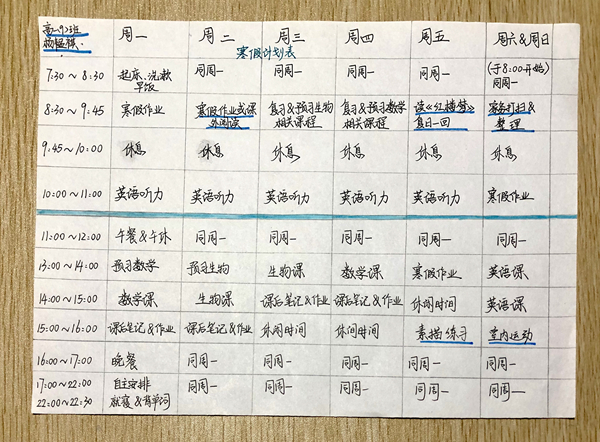 高一(9)班 周一 周二 周三 周四 周五 周六&周日
寒假计划表
7:30～8:30 起床、洗漱 同周一 同周一 同周一 同周一 (于8:00开始)
早饭 同周一
8:30～9:45 寒假作业 寒假作业或课 复习&预习生物 复习&预习数学 读《红楼梦》 家务打扫&
外阅读 相关课程 相关课程 每日一回 整理
9:45～10:00 休息 休息 休息 休息 休息 休息
10:00～11:00 英语听力 英语听力 英语听力 英语听力 英语听力 寒假作业
11:00～12:00 午餐&午休 同周一 同周一 同周一 同周一 同周一
13:00～14:00 预习数学 预习生物 生物课 数学课 寒假作业 英语课
14:00～15:00 数学课 生物课 课后笔记&作业 课后笔记&作业 休闲时间 英语课
15:00～16:00 课后笔记&作业 课后笔记&作业 休闲时间 休闲时间 素描练习 室内运动
16:00～17:00 晚餐 同周一 同周一 同周一 同周一 同周一
17:00～22:00 自主安排 同周一 同周一 同周一 同周一 同周一
22:00～22:30 就寝&背单词